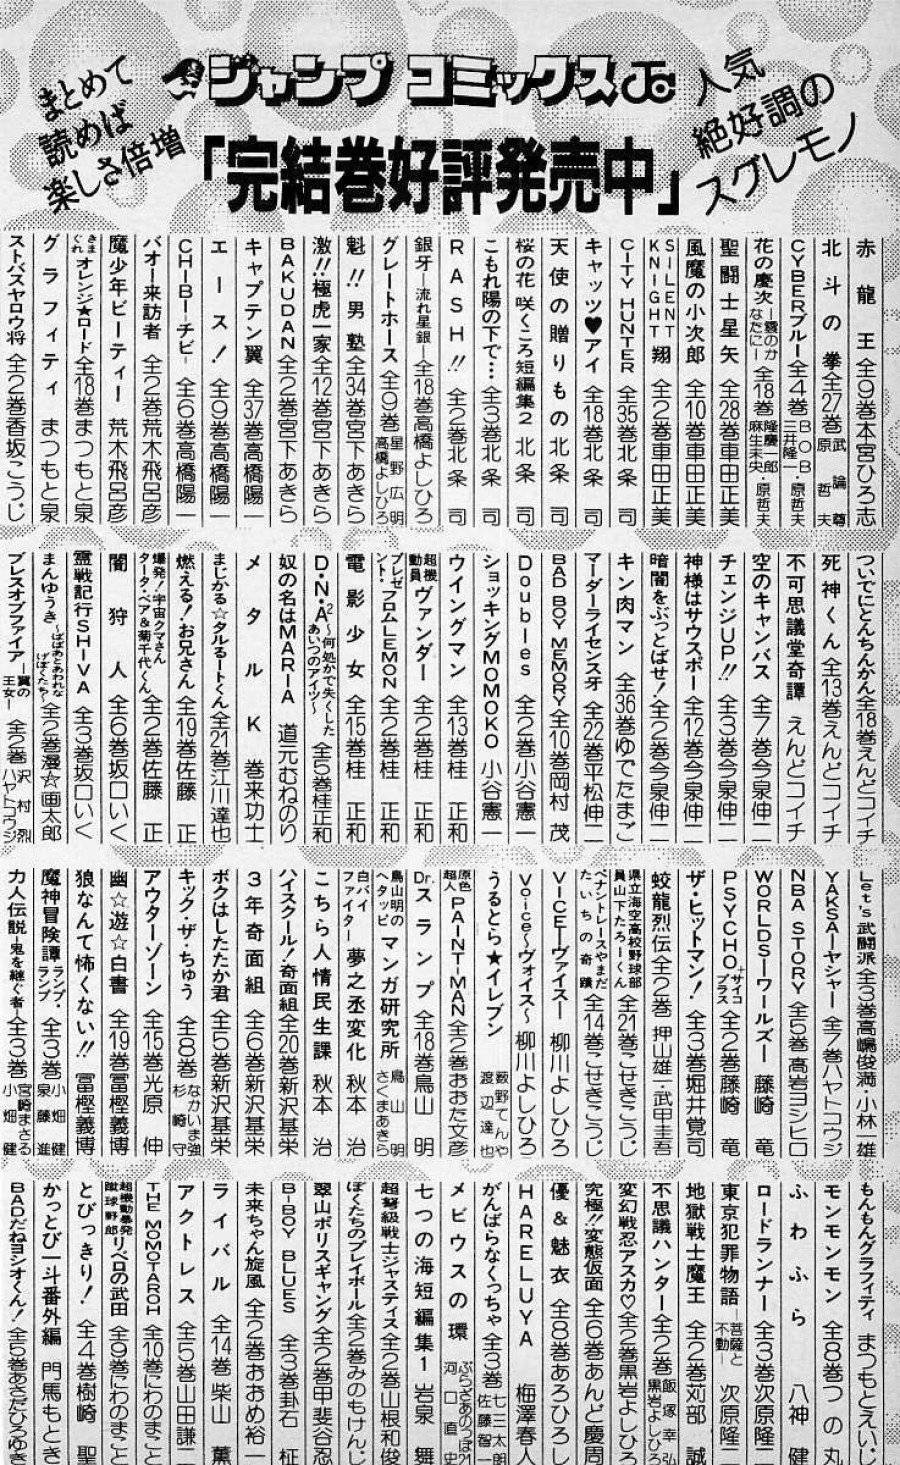 まとめて
読めば
楽しさ倍増
ジャンプ コミックス
人気
絶好調の
スグレモノ
「完結巻好評発売中」
赤龍王 全9巻 本宮ひろ志
北斗の拳 全27巻 武論尊 原哲夫
CYBERブルー 全4巻 BOB 三井隆一・原哲夫
花の慶次―雲のかなたに― 全18巻 隆慶一郎 麻生未央・原哲夫
聖闘士星矢 全28巻 車田正美
風魔の小次郎 全10巻 車田正美
SILENT KNIGHT 翔 全2巻 車田正美
CITY HUNTER 全35巻 北条司
キャッツ♥アイ 全18巻 北条司
天使の贈りもの 北条司
桜の花 咲くころ 短編集2 北条司
こもれ陽の下で… 全3巻 北条司
RASH!! 全2巻 北条司
銀牙―流れ星 銀― 全18巻 高橋よしひろ
グレートホース 全9巻 星野広明 高橋よしひろ
魁!!男塾 全34巻 宮下あきら
激!!極虎一家 全12巻 宮下あきら
BAKUDAN 全2巻 宮下あきら
キャプテン翼 全37巻 高橋陽一
エース! 全9巻 高橋陽一
CHIBI―チビ― 全6巻 高橋陽一
バオー来訪者 全2巻 荒木飛呂彦
魔少年ビーティー 荒木飛呂彦
きまぐれオレンジ★ロード 全18巻 まつもと泉
グラフィティ まつもと泉
ストバスヤロウ将 全2巻 香坂こうじ
ついでにとんちんかん 全18巻 えんどコイチ
死神くん 全13巻 えんどコイチ
不可思議堂奇譚 えんどコイチ
空のキャンバス 全7巻 今泉伸二
チェンジUP!! 全3巻 今泉伸二
神様はサウスポー 全12巻 今泉伸二
暗闇をぶっとばせ! 全2巻 今泉伸二
キン肉マン 全36巻 ゆでたまご
マーダーライセンス牙 全22巻 平松伸二
BAD BOY MEMORY 全10巻 岡村茂
Doubles 全2巻 小谷憲一
ショッキングMOMOKO 小谷憲一
ウイングマン 全13巻 桂正和
超機動員ヴァンダー 全2巻 桂正和
プレゼント・フロムLEMON 全2巻 桂正和
電影少女 全15巻 桂正和
D・N・A² ～何処かで失くしたあいつのアイツ～ 全5巻 桂正和
奴の名はMARIA 道元むねのり
メタルK 巻来功士
まじかる☆タルるートくん 全21巻 江川達也
燃える!お兄さん 全19巻 佐藤正
爆発!宇宙クマさん タータ・ベア&菊千代くん 全2巻 佐藤正
闇狩人 全6巻 坂口いく
霊戦記行SHIVA 全3巻 坂口いく
まんゆうき～ばばあとあわれなげぼくたち～ 全2巻 漫☆画太郎
ブレスオブファイア―翼の王女― 全2巻 沢村烈 ハヤトコウジ
Let's武闘派 全3巻 高嶋俊満・小林一雄
YAKSA―ヤシャー 全7巻 ハヤトコウジ
NBA STORY 全5巻 高岩ヨシヒロ
WORLDS―ワールズ― 藤崎竜
PSYCHO+サイコプラス 全2巻 藤崎竜
ザ・ヒットマン! 全3巻 堀井覚司
蛟龍烈伝 全2巻 押山雄一・武甲圭吾
県立海空高校野球部員山下たろーくん 全21巻 こせきこうじ
ペナントレースやまだたいちの奇蹟 全14巻 こせきこうじ
VICE―ヴァイス― 柳川よしひろ
Voice～ヴォイス～ 柳川よしひろ
うるとら★イレブン 藪野てんや 渡辺達也
原色超人PAINT-MAN 全2巻 おおた文彦
Dr.スランプ 全18巻 鳥山明
鳥山明のヘタッピマンガ研究所 鳥山明 さくまあきら
白バイファイター夢之丞変化 秋本治
こちら人情民生課 秋本治
ハイスクール!奇面組 全20巻 新沢基栄
3年奇面組 全6巻 新沢基栄
ボクはしたたか君 全5巻 新沢基栄
キック・ザ・ちゅう 全8巻 なかいま強 杉崎守
アウターゾーン 全15巻 光原伸
幽☆遊☆白書 全19巻 冨樫義博
狼なんて怖くない!! 冨樫義博
魔神冒険譚ランプ・ランプ 全3巻 小畑健 泉藤進
力人伝説―鬼を継ぐ者― 全3巻 宮崎まさる 小畑健
もんもんグラフィティ まつもとえいじ
モンモンモン 全8巻 つの丸
ふわふら 八神健
ロードランナー 全3巻 次原隆二
東京犯罪物語―菩薩と不動― 次原隆二
地獄戦士魔王 全2巻 苅部誠
不思議ハンター 全2巻 飯塚幸弘 黒岩よしひろ
変幻戦忍アスカ♡ 全2巻 黒岩よしひろ
究極!!変態仮面 全6巻 あんど慶周
優&魅衣 全8巻 あろひろし
HARELUYA 梅澤春人
がんばらなくっちゃ 全3巻 七三太朗 佐藤智一
メビウスの環 ぶらざあのっぽ21 河口直史
七つの海 短編集1 岩泉舞
超弩級戦士ジャスティス 全2巻 山根和俊
ぼくたちのプレイボール 全2巻 みのもけんじ
翠山ポリスギャング 全2巻 甲斐谷忍
B-BOY BLUES 全3巻 卦石柾
未来ちゃん旋風 全2巻 おおめ裕一
ライバル 全14巻 柴山薫
アクトレス 全5巻 山田謙二
THE MOMOTAROH 全10巻 にわのまこと
超機動暴発蹴球野郎リベロの武田 全9巻 にわのまこと
とびっきり! 全4巻 樹崎聖
かっとび一斗番外編 門馬もとき
BADだねヨシオくん! 全5巻 あさだひろゆき